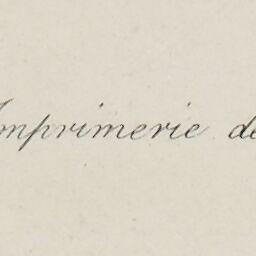 Imprimerie de